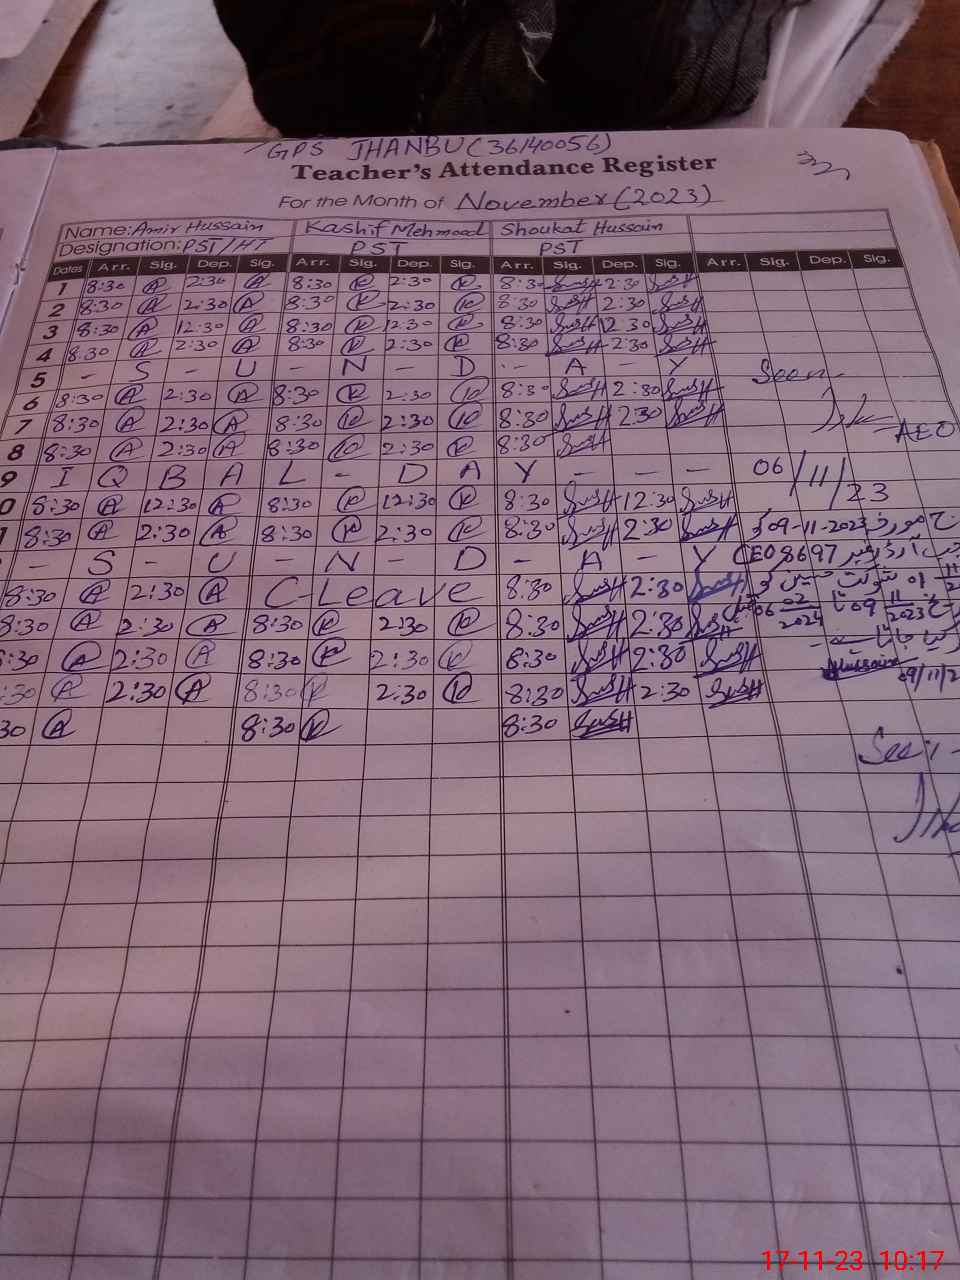 GPS JHANBU (36140056)
Teacher's Attendance Register
For the Month of November (2023)
Name: Amir Hussain Kashif Mehmood Shoukat Hussain
Designation: PST/HT PST PST
Dates Arr. Sig. Dep. Sig. Arr. Sig. Dep. Sig. Arr. Sig. Dep. Sig. Arr. Sig. Dep. Sig.
1 8:30 A 2:30 A 8:30 K 2:30 K 8:30 2:30
2 8:30 A 2:30 A 8:30 K 2:30 K 8:30 2:30
3 8:30 A 12:30 A 8:30 K 12:30 K 8:30 12:30
4 8:30 A 2:30 A 8:30 K 2:30 K 8:30 2:30
5 - S - U - N - D - A - Y Seen
6 8:30 A 2:30 A 8:30 K 2:30 K 8:30 2:30
7 8:30 A 2:30 A 8:30 K 2:30 K 8:30 2:30 AEO
8 8:30 A 2:30 A 8:30 K 2:30 K 8:30
9 I Q B A L - D A Y - - - 06/11/23
0 8:30 A 12:30 A 8:30 K 12:30 K 8:30 12:30
1 8:30 A 2:30 A 8:30 K 2:30 K 8:30 2:30 مورخہ 09-11-2023 کو
- - S - U - N - D - A - Y CEO 8697 آرڈر نمبر
8:30 A 2:30 A C-Leave 8:30 2:30 شوکت حسین
8:30 A 2:30 A 8:30 K 2:30 K 8:30 2:30 06 02/2024 تا 09 11/2023
:30 A 2:30 A 8:30 K 2:30 K 8:30 2:30 کیا جاتا ہے
:30 A 2:30 A 8:30 K 2:30 K 8:30 2:30 Hussain 09/11/2
30 A 8:30 K 8:30
Seen
17-11-23 10:17